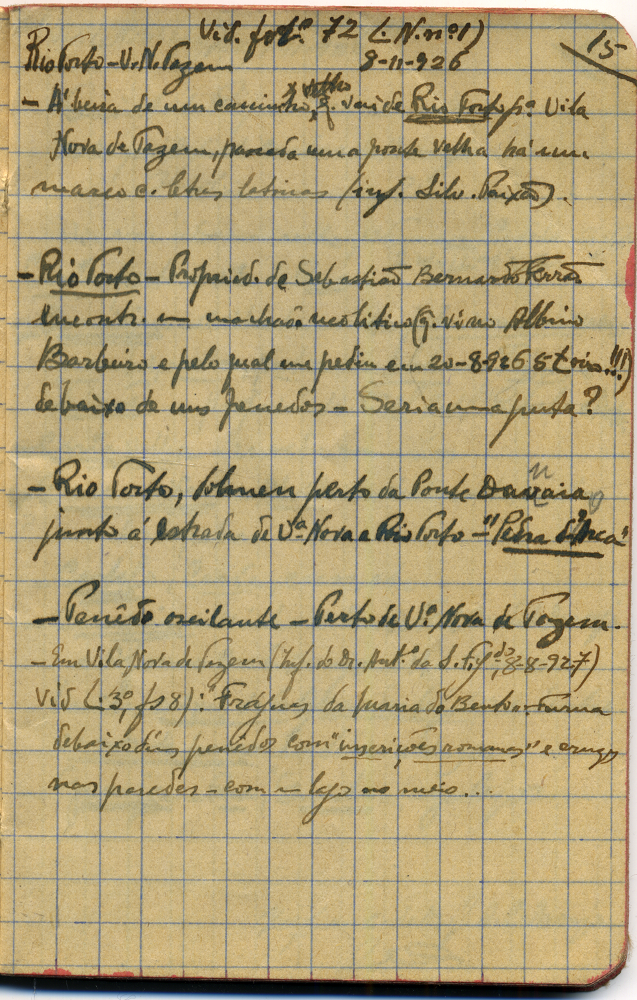 Vid. folº. 72 (L. N. nº 1)
15
Rio Torto - V. N. Tazem 8-11-926
- Á beira de um caminho velho, q. vai de Rio Torto pª Vila
Nova de Tazem, passada uma ponte velha há um
marco c. letras latinas (inf. Silv. Paixão).
- Rio Torto - Propried. de Sebastião Bernardo Ferrão
encontr. um machado neolitico (q. vi no Albino
Barbeiro e pelo qual me pediu em 20-8-926 5 !!!)
debaixo de uns penedos - Seria uma gruta?
- Rio Torto, dolmen perto da Ponte
junto á estrada de Vª Nova a Rio Torto - "Pedra d'Arca"
- Penêdo oscilante - Perto de Vª Nova de Tazem.
- Em Vila Nova de Tazem (Inf. do Dr. Antº da 8-8-927)
vid L. 3º, fs 8): "Fragas da Maria do Bento - Furna
debaixo duns penedos com "inscrições romanas" e cruzes
nas paredes - com um lago no meio...